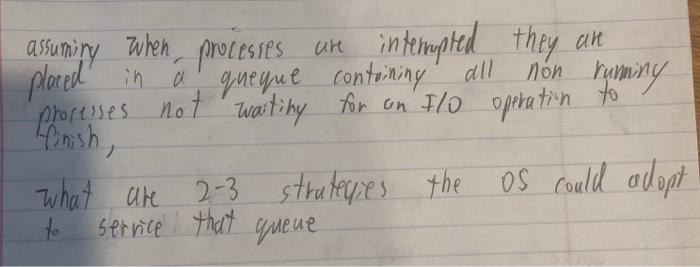 assuming when processes are interrupted they are
placed in a queque containing all non running
processes not waiting for an I/O operation to
finish,
what are 2-3 strategies the OS could adopt
to service that queue